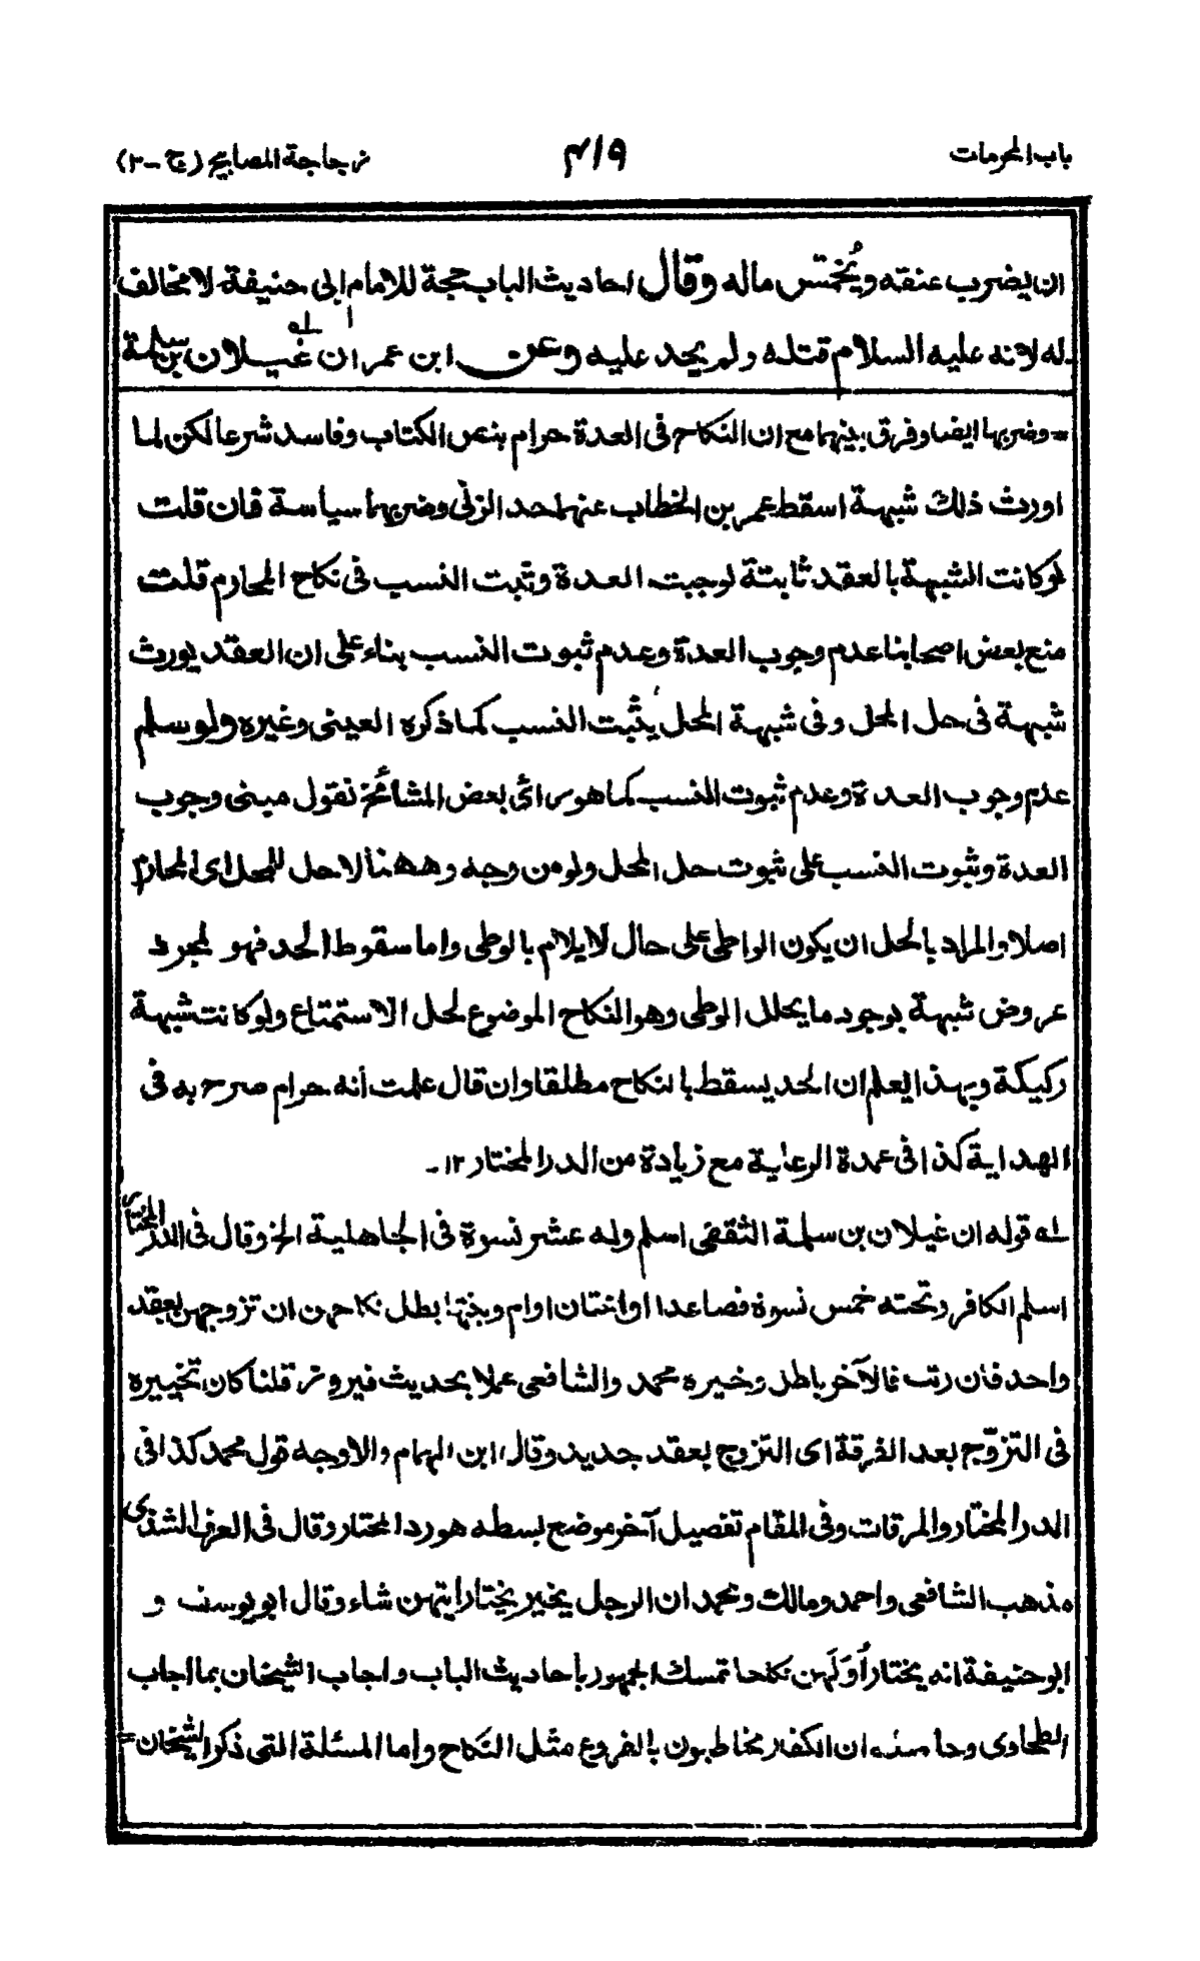 باب المحرمات
۴۱۹
زجاجة المصابيح (ج-۲)
ان يضرب عنقه ويُخمّس ماله وقال احاديث الباب حجة للامام ابى حنيفة لا مخالف
له لانه عليه السلام قتله ولم يحد عليه وعن ابن عمر ان غيلان بن سلمة
= وضربها ايضا وفرق بينهما مع ان النكاح فى العدة حرام بنص الكتاب وفاسد شرعا لكن لما
اورث ذلك شبهة اسقط عمر بن الخطاب عنهما حد الزنى وضربهما سياسة فان قلت
لو كانت الشبهة بالعقد ثابتة لوجبت العدة وثبت النسب فى نكاح المحارم قلت
منع بعض اصحابنا عدم وجوب العدة وعدم ثبوت النسب بناء على ان العقد يورث
شبهة فى حل المحل وفى شبهة المحل يثبت النسب كما ذكره العينى وغيره ولو سلم
عدم وجوب العدة وعدم ثبوت النسب كما هو رائ بعض المشائخ نقول مبنى وجوب
العدة وثبوت النسب على ثبوت حل المحل ولو من وجه وههنا لا حل للمحل اى المحارم
اصلا والمراد بالحل ان يكون الواطى على حال لا يلام بالوطى واما سقوط الحد فهو لمجرد
عروض شبهة بوجود ما يحلل الوطى وهو النكاح الموضوع لحل الاستمتاع ولو كانت شبهة
ركيكة وبهذا يعلم ان الحد يسقط بالنكاح مطلقا وان قال علمت أنه حرام صرح به فى
الهداية كذا فى عمدة الرعاية مع زيادة من الدر المختار ١٢ـ
له قوله ان غيلان بن سلمة الثقفى اسلم وله عشر نسوة فى الجاهلية الخ وقال فى الدر المختار
اسلم الكافر وتحته خمس نسوة فصاعدا او اختان او ام وبنتها بطل نكاحهن ان تزوجهن بعقد
واحد فان رتب فالآخر باطل وخيره محمد والشافعى عملا بحديث فيروز قلنا كان تخييره
فى التزوّج بعد الفرقة اى التزوج بعقد جديد وقال ابن الهمام والاوجه قول محمد كذا فى
الدر المختار والمرقات وفى المقام تفصيل آخر موضع بسطه هو رد المختار وقال فى العرف الشذى
مذهب الشافعى واحمد ومالك ومحمد ان الرجل يخير يختار ايتهن شاء وقال ابو يوسف و
ابو حنيفة انه يختار أوَلَهن نكاحا تمسك الجمهور باحاديث الباب واجاب الشيخان بما اجاب
الطحاوى وحاصله ان الكفار مخاطبون بالفروع مثل النكاح واما المسئلة التى ذكر الشيخان =